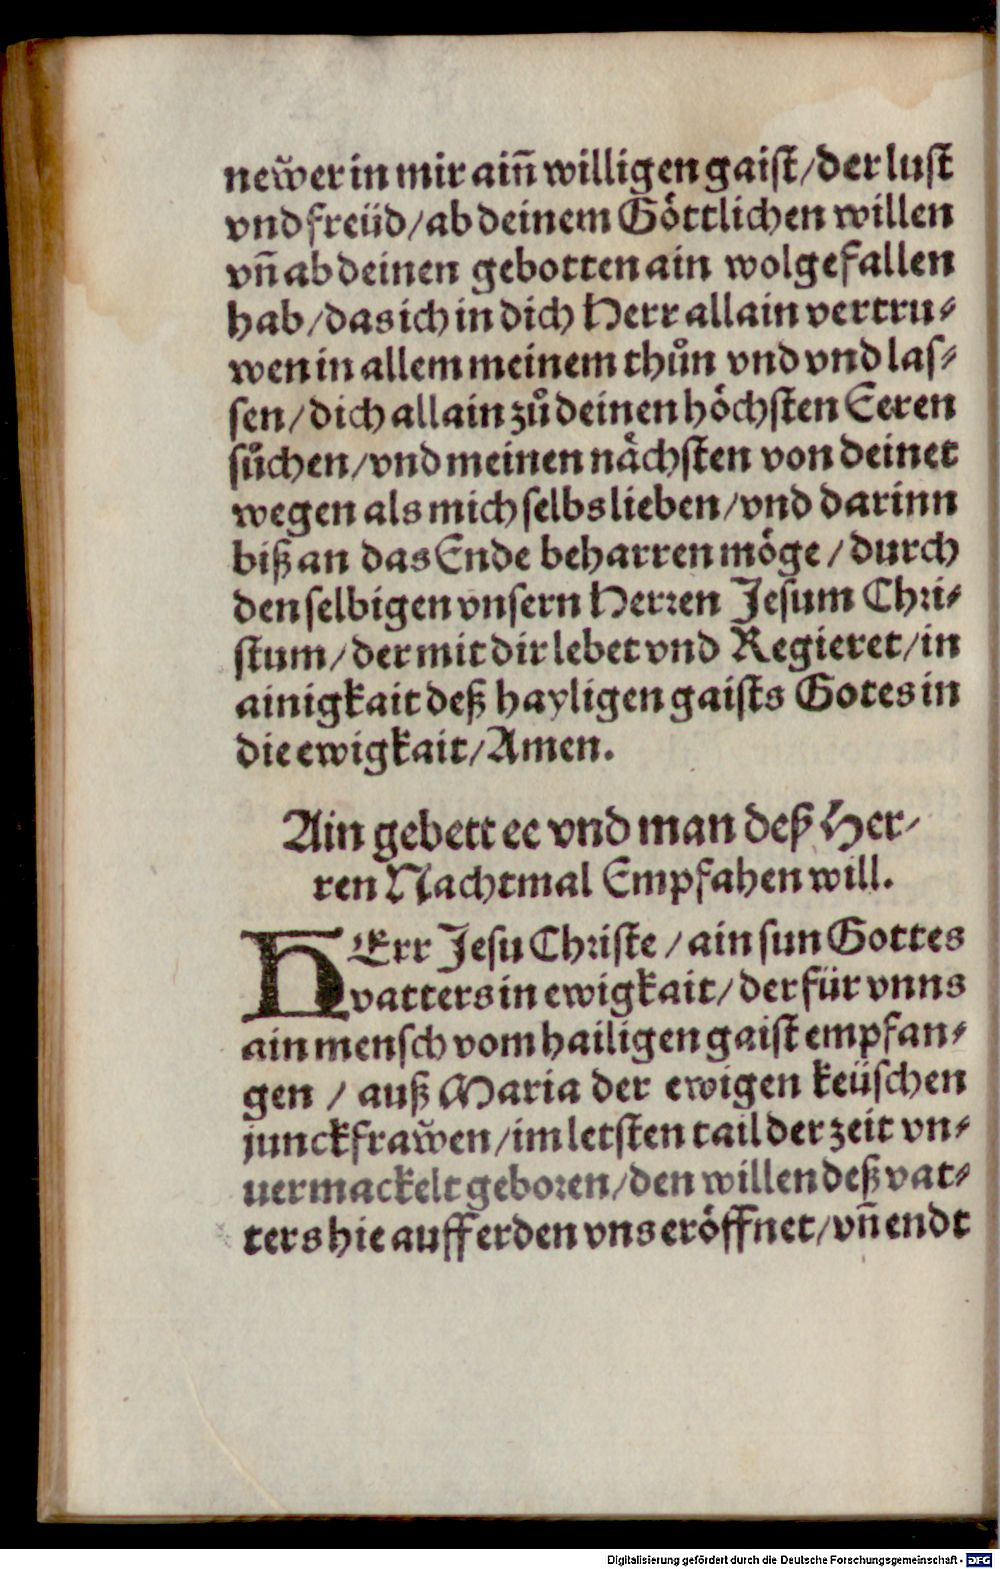 new̃er in mir aiñ willigen gaist / der lust
vnd freüd / ab deinem Göttlichen willen
vñ ab deinen gebotten ain wolgefallen
hab / das ich in dich Herr allain vertru-
wen in allem meinem thůn vnd vnd las-
sen / dich allain zů deinen höchsten Eeren
sůchen / vnd meinen nächsten von deinet
wegen als mich selbs lieben / vnd darinn
biß an das Ende beharren möge / durch
den selbigen vnsern Herren Jesum Chri-
stum / der mit dir lebet vnd Regieret / in
ainigkait deß hayligen gaists Gotes in
die ewigkait / Amen.
Ain gebett ee vnd man deß Her-
ren Nachtmal Empfahen will.
HErr Jesu Christe / ain sun Gottes
vatters in ewigkait / der für vnns
ain mensch vom hailigen gaist empfan-
gen / auß Maria der ewigen keüschen
junckfraw̃en / im letsten tail der zeit vn-
uermackelt geboren / den willen deß vat-
ters hie auff erden vns eröffnet / vñ endt
Digitalisierung gefördert durch die Deutsche Forschungsgemeinschaft - DFG